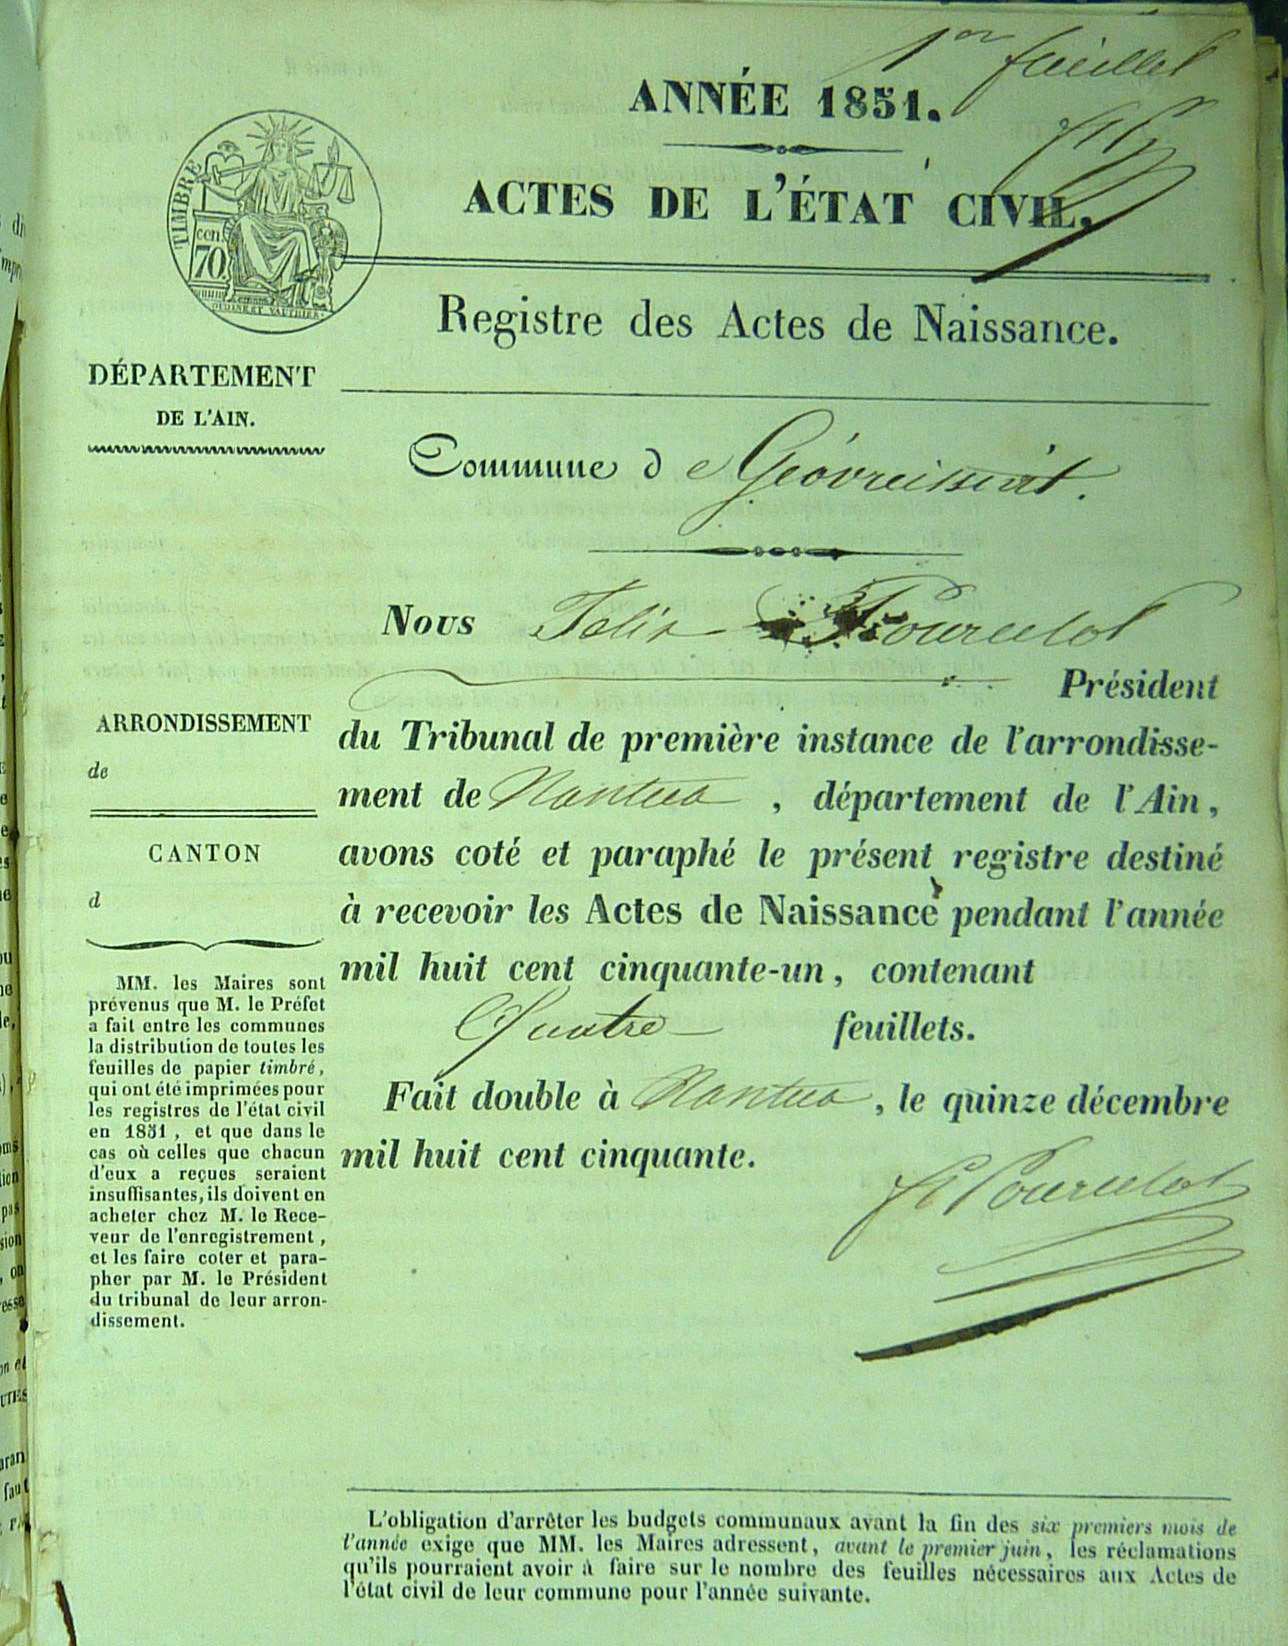 1er feuillet
ANNÉE 1851.
ACTES DE L'ÉTAT CIVIL.
TIMBRE
cen.
70.
Registre des Actes de Naissance.
DÉPARTEMENT
DE L'AIN.
Commune de Géovreissiat.
Nous Felix Pourcelot
Président
du Tribunal de première instance de l'arrondisse-
ment de Nantua, département de l'Ain,
avons coté et paraphé le présent registre destiné
à recevoir les Actes de Naissance pendant l'année
mil huit cent cinquante-un, contenant
Quatre feuillets.
Fait double à Nantua, le quinze décembre
mil huit cent cinquante.
f Pourcelot
ARRONDISSEMENT
de
CANTON
d
MM. les Maires sont
prévenus que M. le Préfet
a fait entre les communes
la distribution de toutes les
feuilles de papier timbré,
qui ont été imprimées pour
les registres de l'état civil
en 1851, et que dans le
cas où celles que chacun
d'eux a reçues seraient
insuffisantes, ils doivent en
acheter chez M. le Rece-
veur de l'enregistrement,
et les faire coter et para-
pher par M. le Président
du tribunal de leur arron-
dissement.
L'obligation d'arrêter les budgets communaux avant la fin des six premiers mois de
l'année exige que MM. les Maires adressent, avant le premier juin, les réclamations
qu'ils pourraient avoir à faire sur le nombre des feuilles nécessaires aux Actes de
l'état civil de leur commune pour l'année suivante.